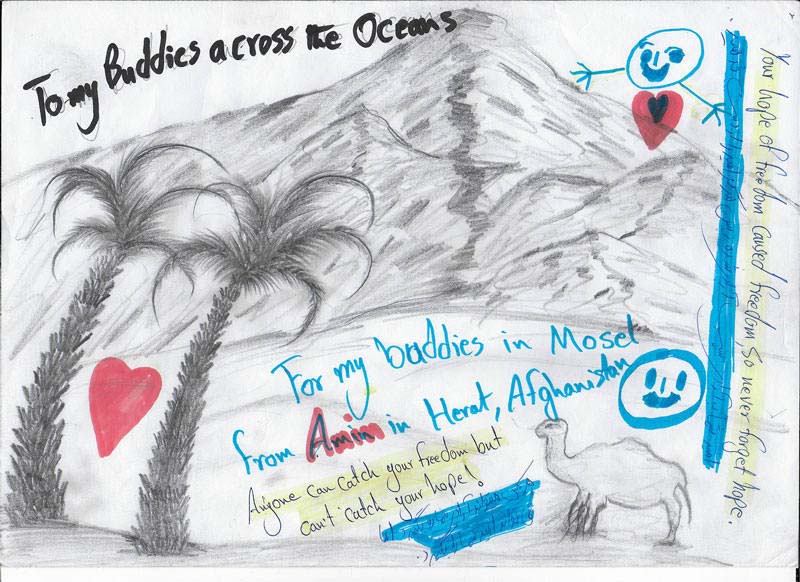 To my Buddies across the Oceans
For my buddies in Mosel
from Amin in Herat, Afghanistan
Anyone can catch your freedom but
can't catch your hope!
Your hope of freedom caused freedom, so never forget hope.